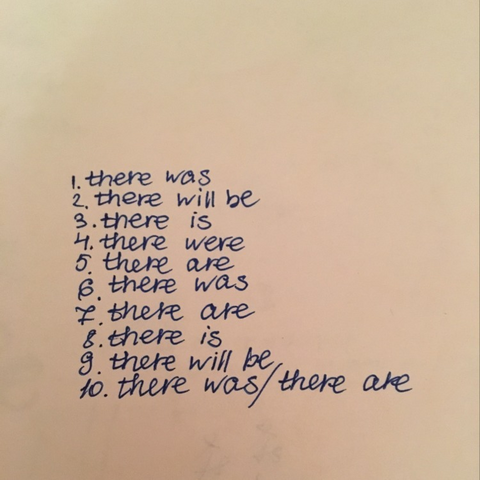 1. there was
2. there will be
3. there is
4. there were
5. there are
6. there was
7. there are
8. there is
9. there will be
10. there was/there are